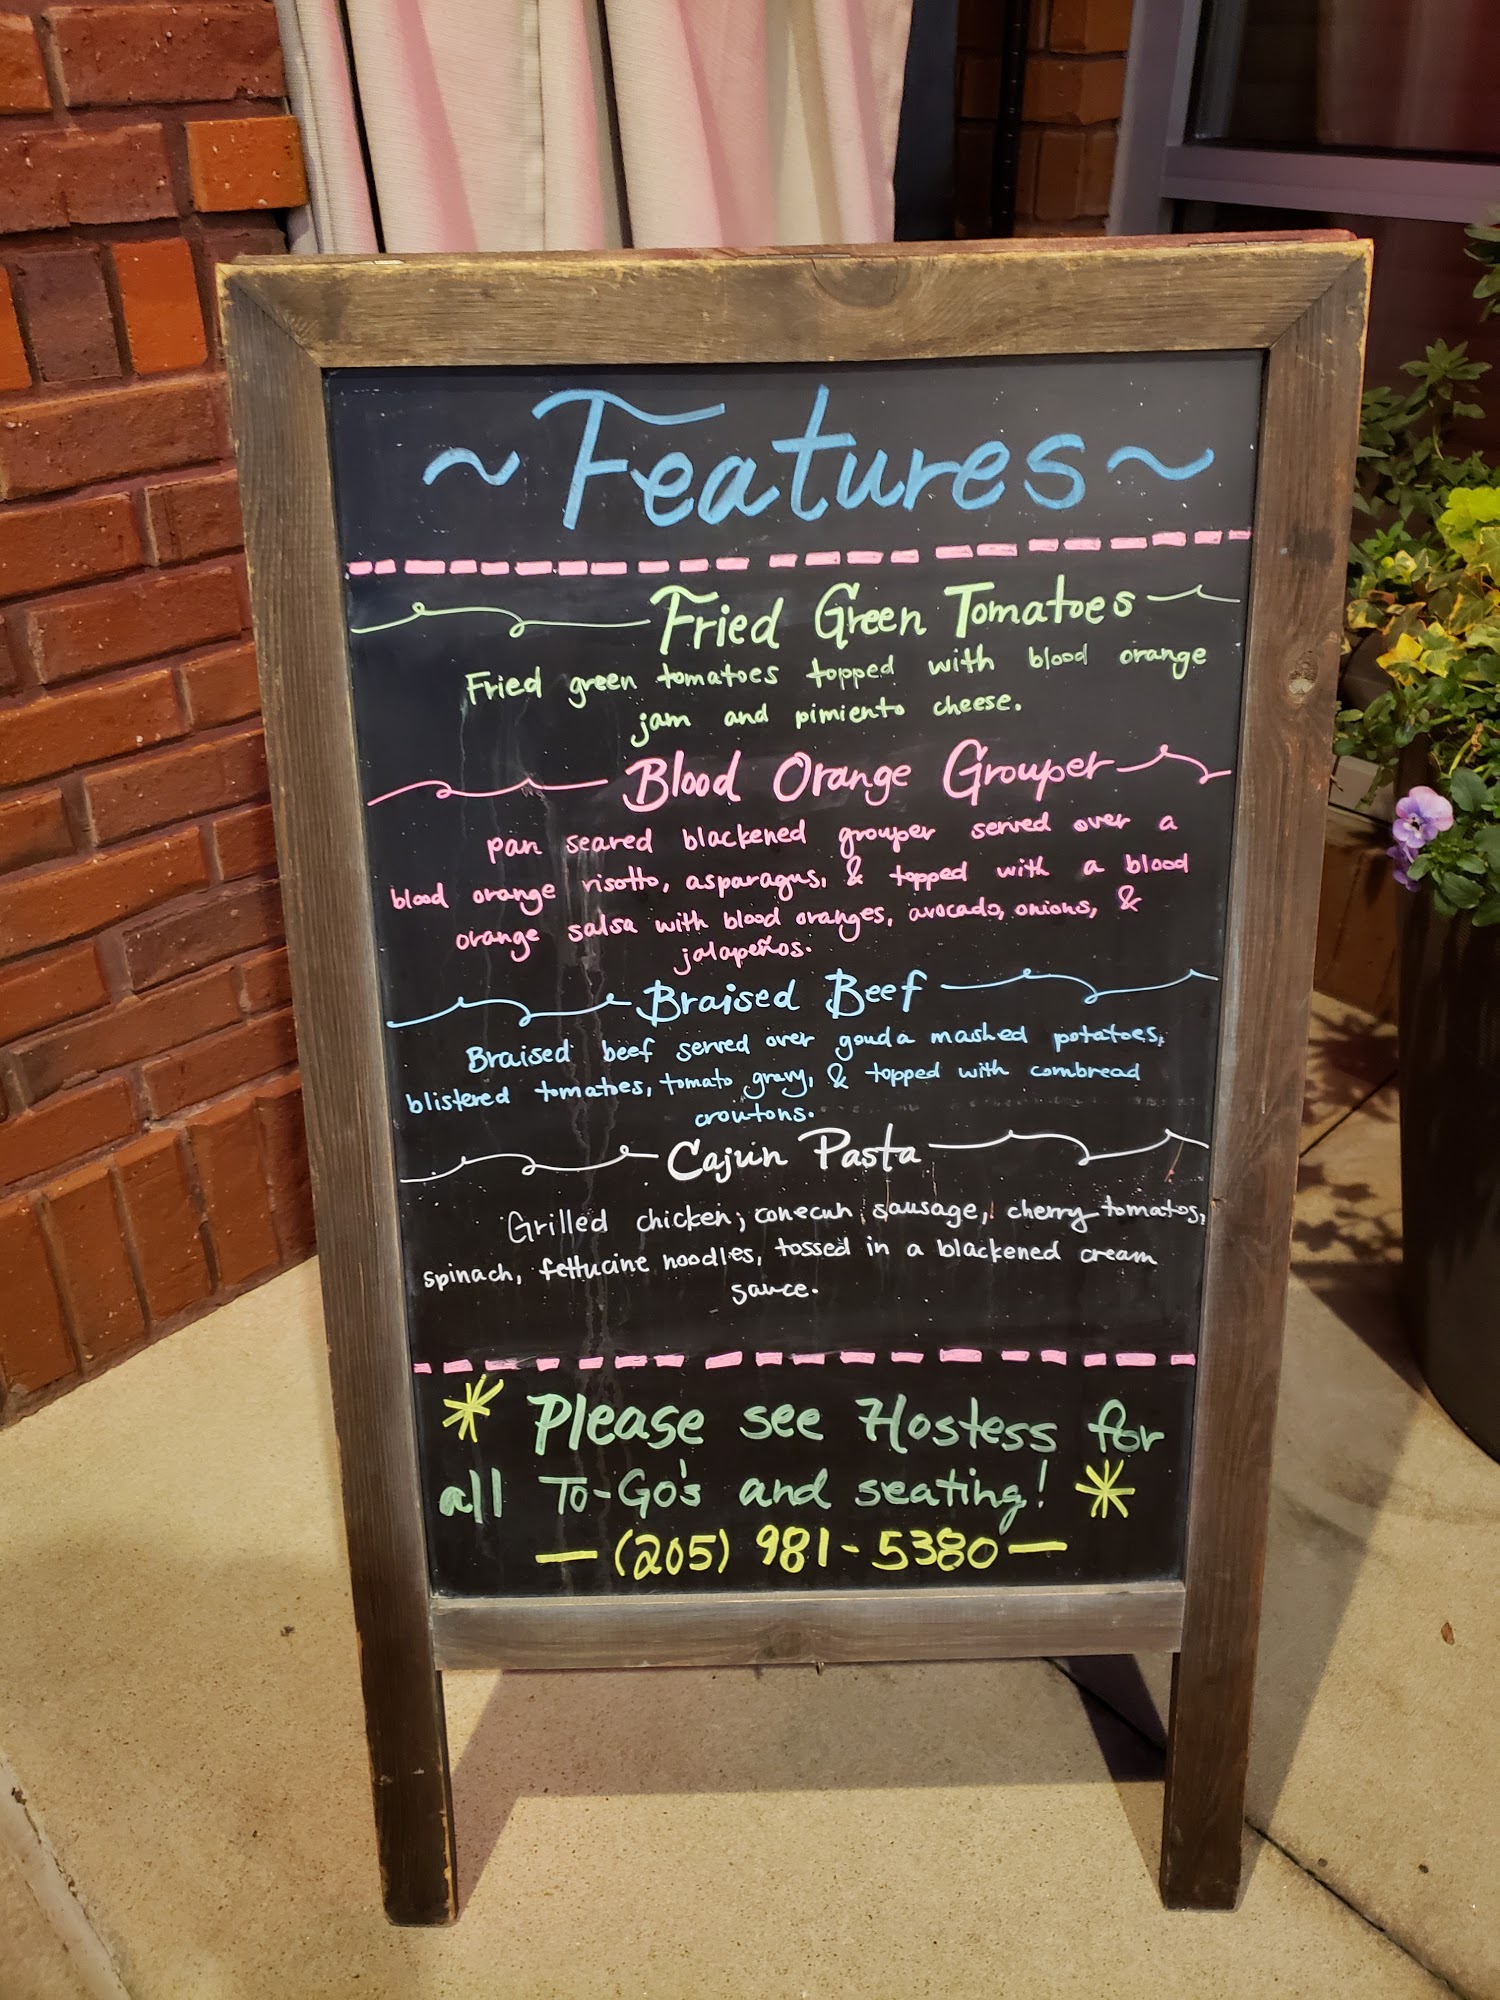 ~ Features ~
Fried Green Tomatoes
Fried green tomatoes topped with blood orange
jam and pimiento cheese.
Blood Orange Grouper
pan seared blackened grouper served over a
blood orange risotto, asparagus, & topped with a blood
orange salsa with blood oranges, avocado, onions, &
jalapeños.
Braised Beef
Braised beef served over gouda mashed potatoes,
blistered tomatoes, tomato gravy, & topped with cornbread
croutons.
Cajun Pasta
Grilled chicken, conecuh sausage, cherry tomatos,
spinach, fettucine noodles, tossed in a blackened cream
sauce.
* Please see Hostess for
all To-Go's and seating! *
— (205) 981-5380 —